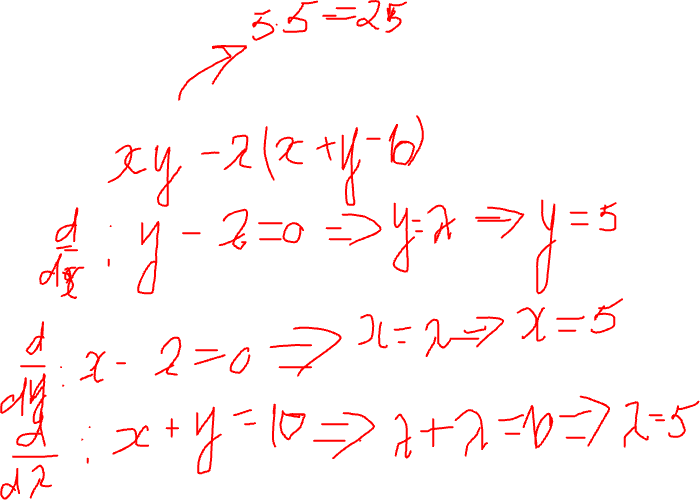 5.5=25
xy-λ(x+y-10)
d/dx: y-λ=0⇒y=λ⇒y=5
d/dy: x-λ=0⇒x=λ⇒x=5
d/dλ: x+y=10⇒λ+λ=10⇒λ=5